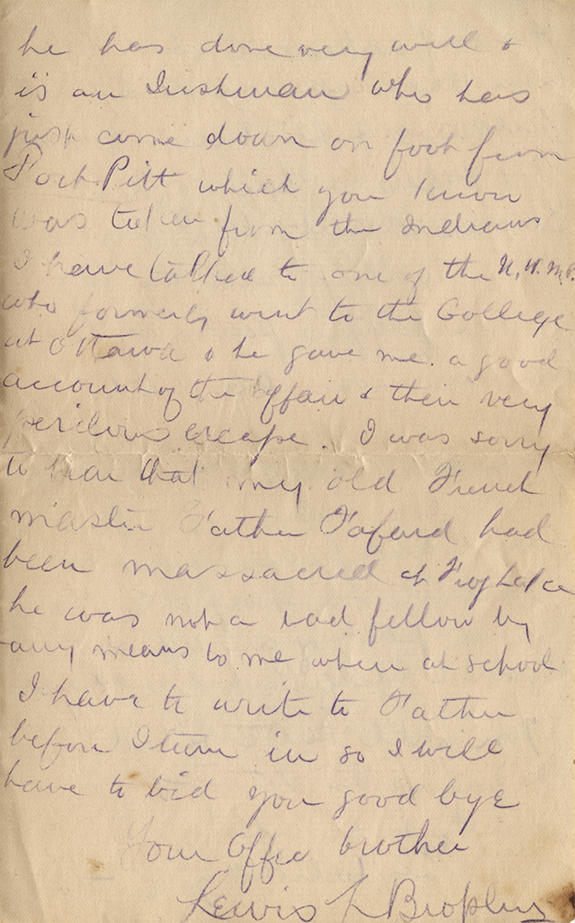 he has done very well &
is an Irishman who has
just come down on foot from
Fort Pitt which you know
was taken from the Indians
I have talked to one of the N.W.M.P.
who formerly went to the College
at Ottawa & he gave me a good
account of the affair & their very
perilous escape. I was sorry
to hear that my old French
master Father Fafard had
been massacred at Frog Lake
he was not a bad fellow by
any means to me when at school
I have to write to Father
before I turn in so I will
have to bid you good bye
Your affec brother
Lewis